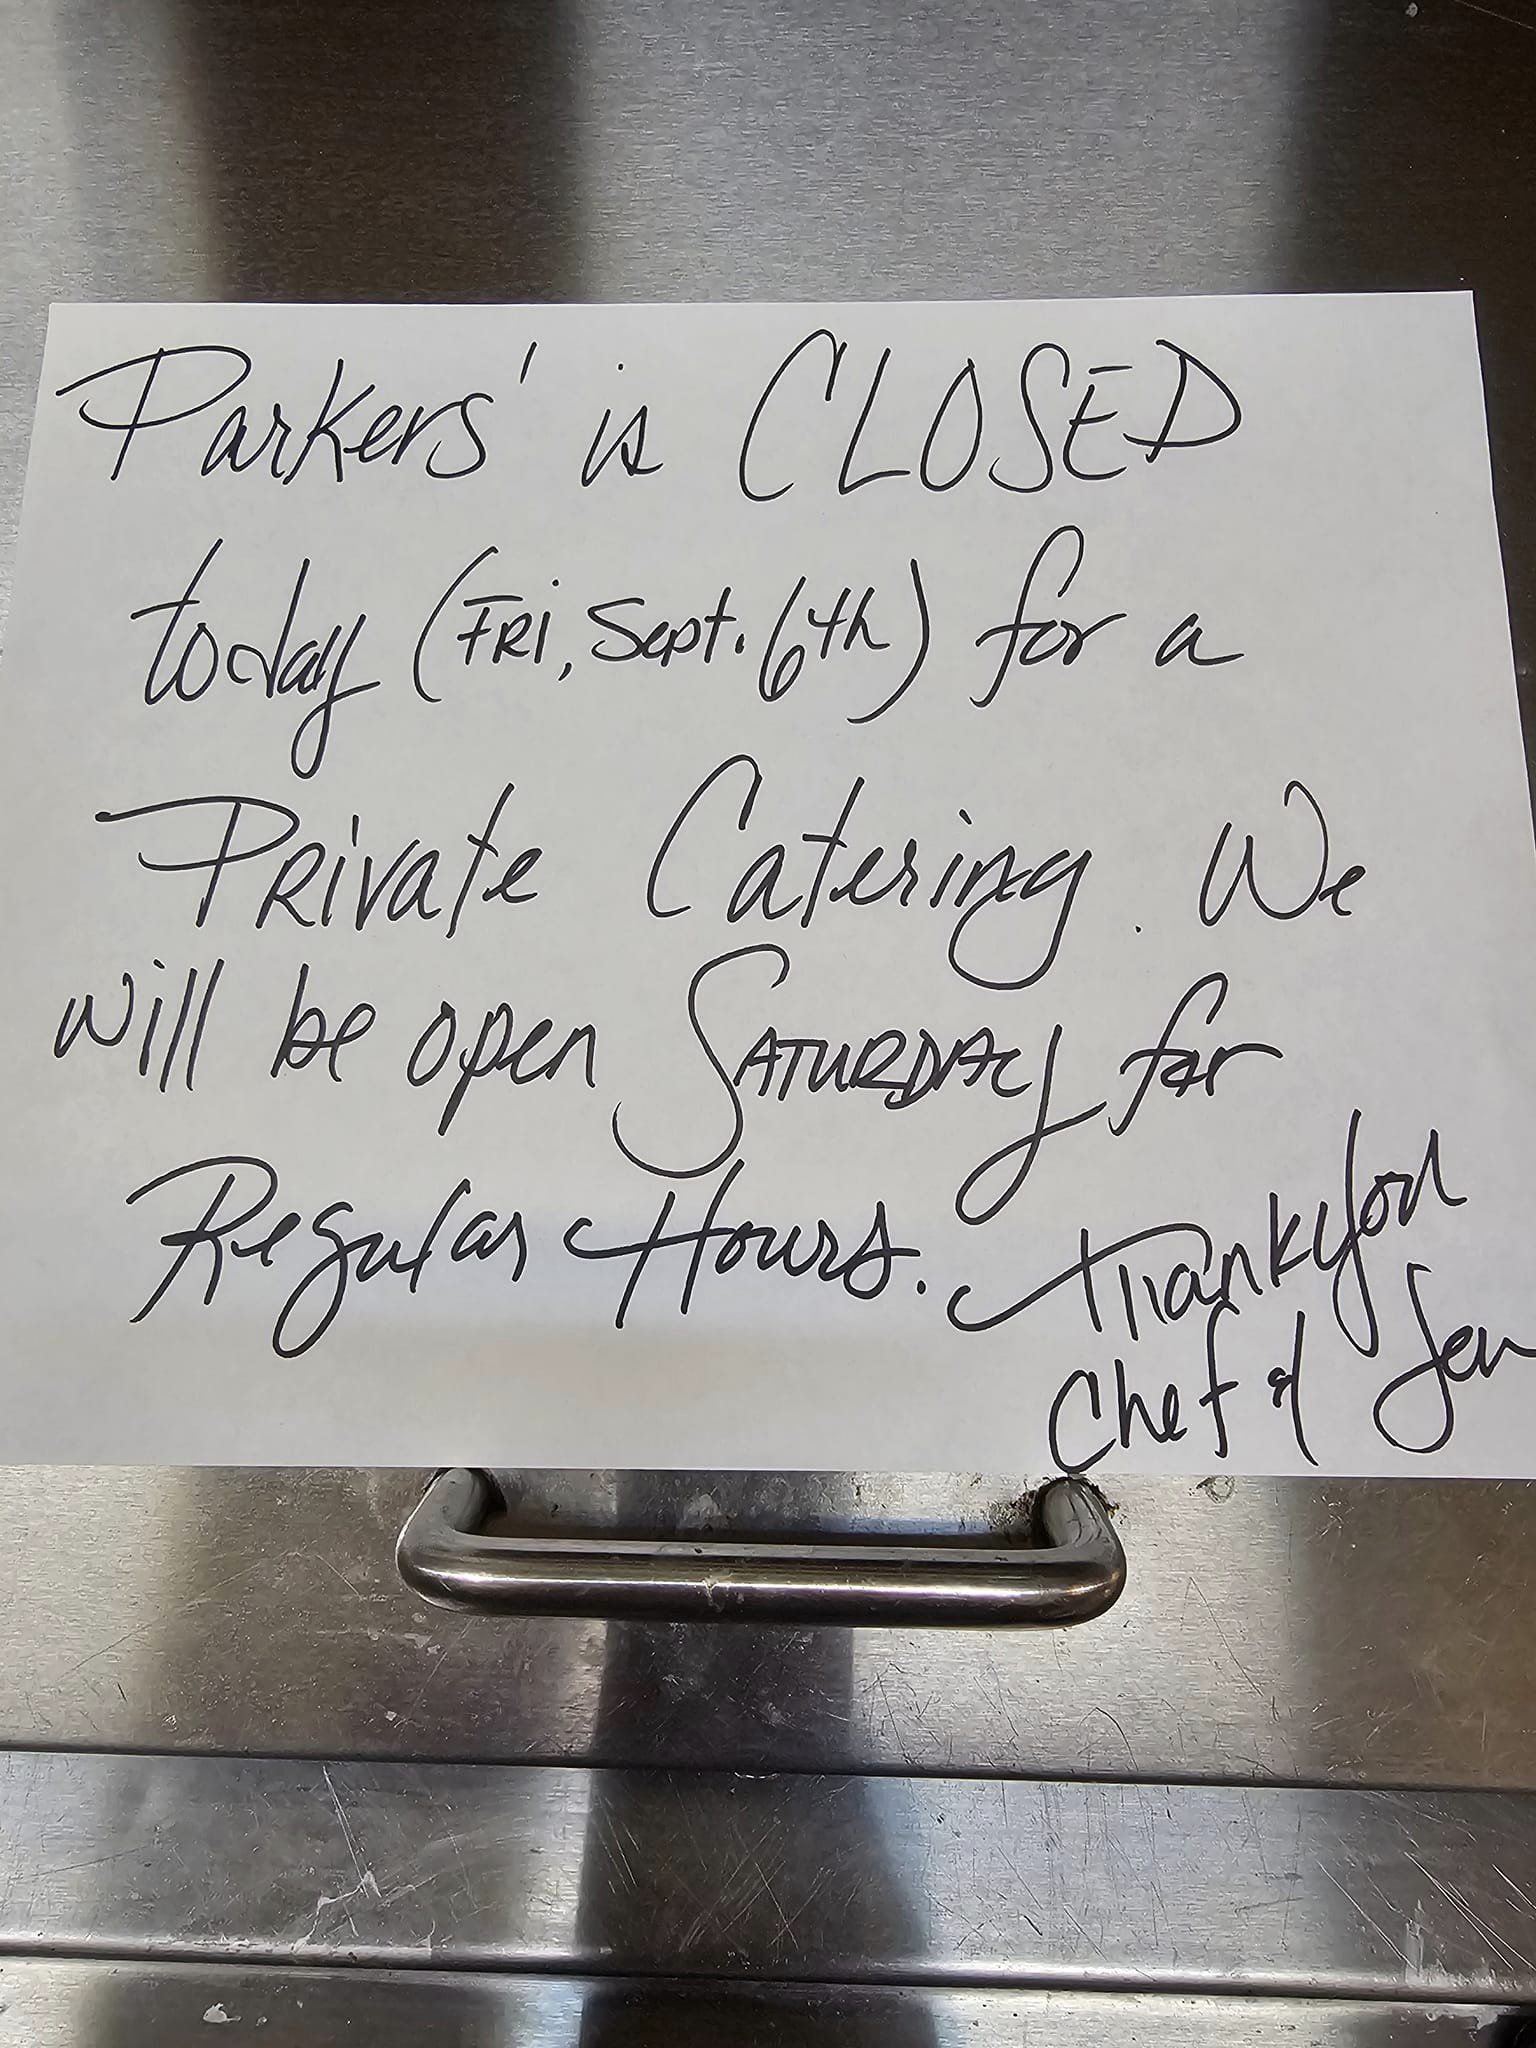 Parkers' is CLOSED
today (FRI, Sept. 6th) for a
Private Catering. We
will be open SATURDAY for
Regular Hours. Thank you
Chef & Jen